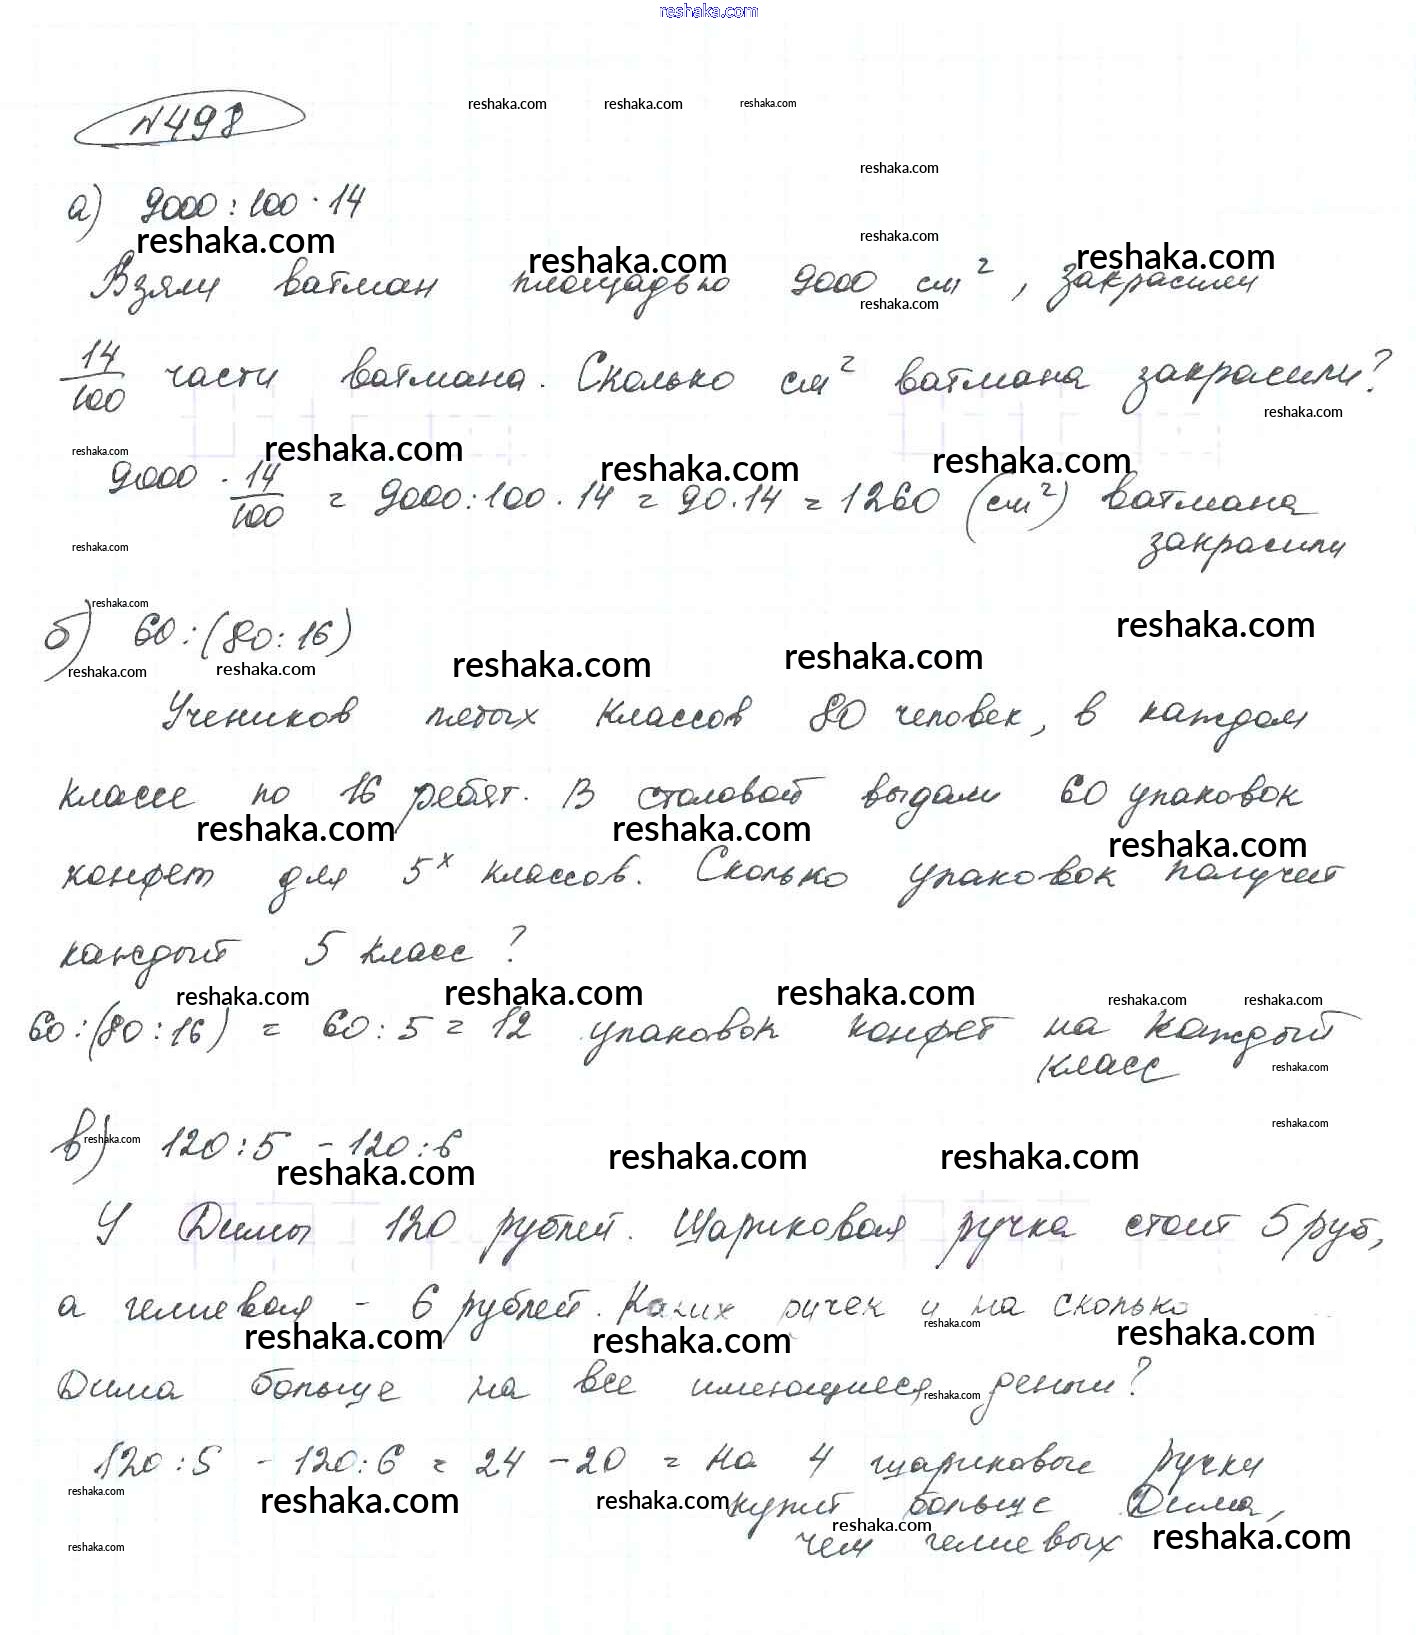 reshaka.com
№498
reshaka.com reshaka.com reshaka.com
reshaka.com
а) 9000 : 100 · 14
reshaka.com reshaka.com reshaka.com reshaka.com
Взяли ватман площадью 9000 см², закрасили
reshaka.com
14/100 части ватмана. Сколько см² ватмана закрасили?
reshaka.com
reshaka.com reshaka.com reshaka.com reshaka.com
9000 · 14/100 = 9000 : 100 · 14 = 90 · 14 = 1260 (см²) ватмана
закрасили
reshaka.com
reshaka.com
б) 60 : (80 : 16)
reshaka.com
reshaka.com reshaka.com reshaka.com reshaka.com
Учеников пятых классов 80 человек, в каждом
классе по 16 ребят. В столовой выдали 60 упаковок
reshaka.com reshaka.com reshaka.com
конфет для 5х классов. Сколько упаковок получит
каждый 5 класс?
reshaka.com reshaka.com reshaka.com reshaka.com reshaka.com
60 : (80 : 16) = 60 : 5 = 12 упаковок конфет на каждый
класс
reshaka.com
reshaka.com
в) 120 : 5 - 120 : 6
reshaka.com
reshaka.com reshaka.com reshaka.com
У Димы 120 рублей. Шариковая ручка стоит 5 руб,
а гелиевая - 6 рублей. Каких ручек и на сколько
reshaka.com reshaka.com reshaka.com reshaka.com
Дима больше на все имеющиеся деньги?
reshaka.com
120 : 5 - 120 : 6 = 24 - 20 = на 4 шариковые ручки
reshaka.com reshaka.com reshaka.com
купит больше Дима,
reshaka.com reshaka.com
чем гелиевых
reshaka.com